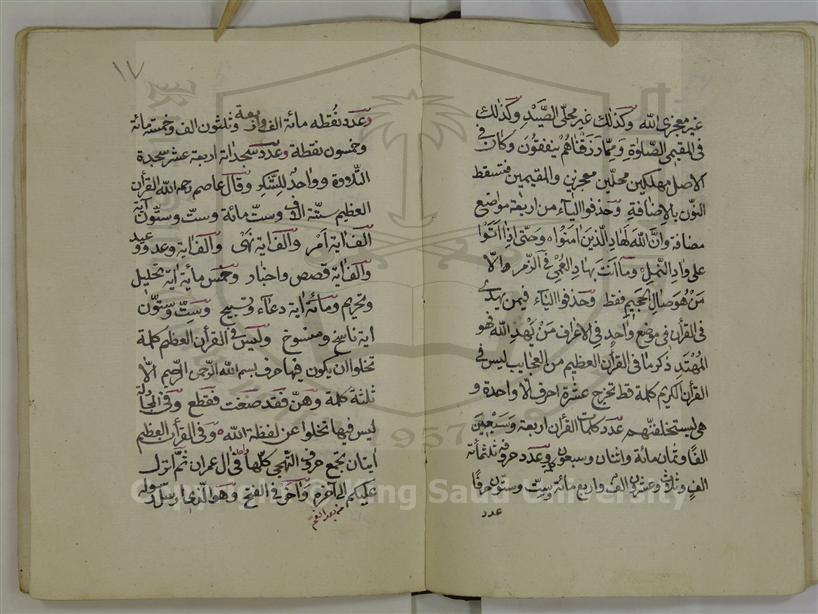 غير معجزى الله وكذلك غير محلّى الصَّيْدِ وكذلك
فى المقيمى الصَّلوٰةِ وَمِمَّا رَزَقْنَاهُمْ ينفقون وكان فى
الاصل مهلكين محلّين معجزين والمقيمين فتسقط
النون بالاضافة وحذفوا الياء من اربعة مواضع
مضافة وانَّ الله لَهَادِ الَّذِينَ امَنُوا وحتى اذا اتوا
على وادِ النَّمل وما انت بهادِ العُمْىِ فى الرّوم والّا
مَنْ هُوَ صَالِ الجحيم فقط وحذفوا الياء فيمن يهدى
فى القرأن فى موضع واحد فى الاعراف مَنْ يَهْدِ الله فهو
المُهْتَدِ ذكر ما فى القرأن العظيم من العجايب ليس فى
القرأن الكريم كلمة قط تخرج عشرة احرف الّا واحدة و
هى ليستخلفنّهم عدد كلمات القرأن اربعة وسبعين
الفًا وثمان مائة واثنان وسبعون كلمة وعدد حروفه ثلثمائة
الفٍ وثلاث وعشرين الف واربع مائة وستّ وستون حرفًا
عدد
١٧
وعدد نُقَطه مائة الف واربعة وثلثون الف وخمسة مائة
وخمسون نقطة وعدد سجداته اربعة عشر سجدة
التلاوة وواحدٌ للشكر وقال عاصم رحمه الله القرأن
العظيم ستّة الاف وستّ مائة وستّ وستّون آية
الف اية امر والف اية نهى والف اية وعد ووعيد
والف اية قصص واخبار وخمس مأية اية تحليل
وتحريم ومائة اية دعاء وتسبيح وستّ وستّون
اية ناسخ ومنسوخ وليس فى القرأن العظيم كلمة
تخلوا ان يكون فيها حرف بسم الله الرحمن الرحيم الّا
ثلثة كلمة وهنّ فقد صغت فقطع وفى المجادلة
ليس فيها تخلوا عن لفظة الله وفى القرأن العظيم
ايتان يجمع حروف التهجى كلّها فى ال عمران ثمّ انزل
عليكم الى اخره واخرى فى الفتح وهو الذى ارسل رسوله
من بعد الغم
Copyright © King Saud University
1957